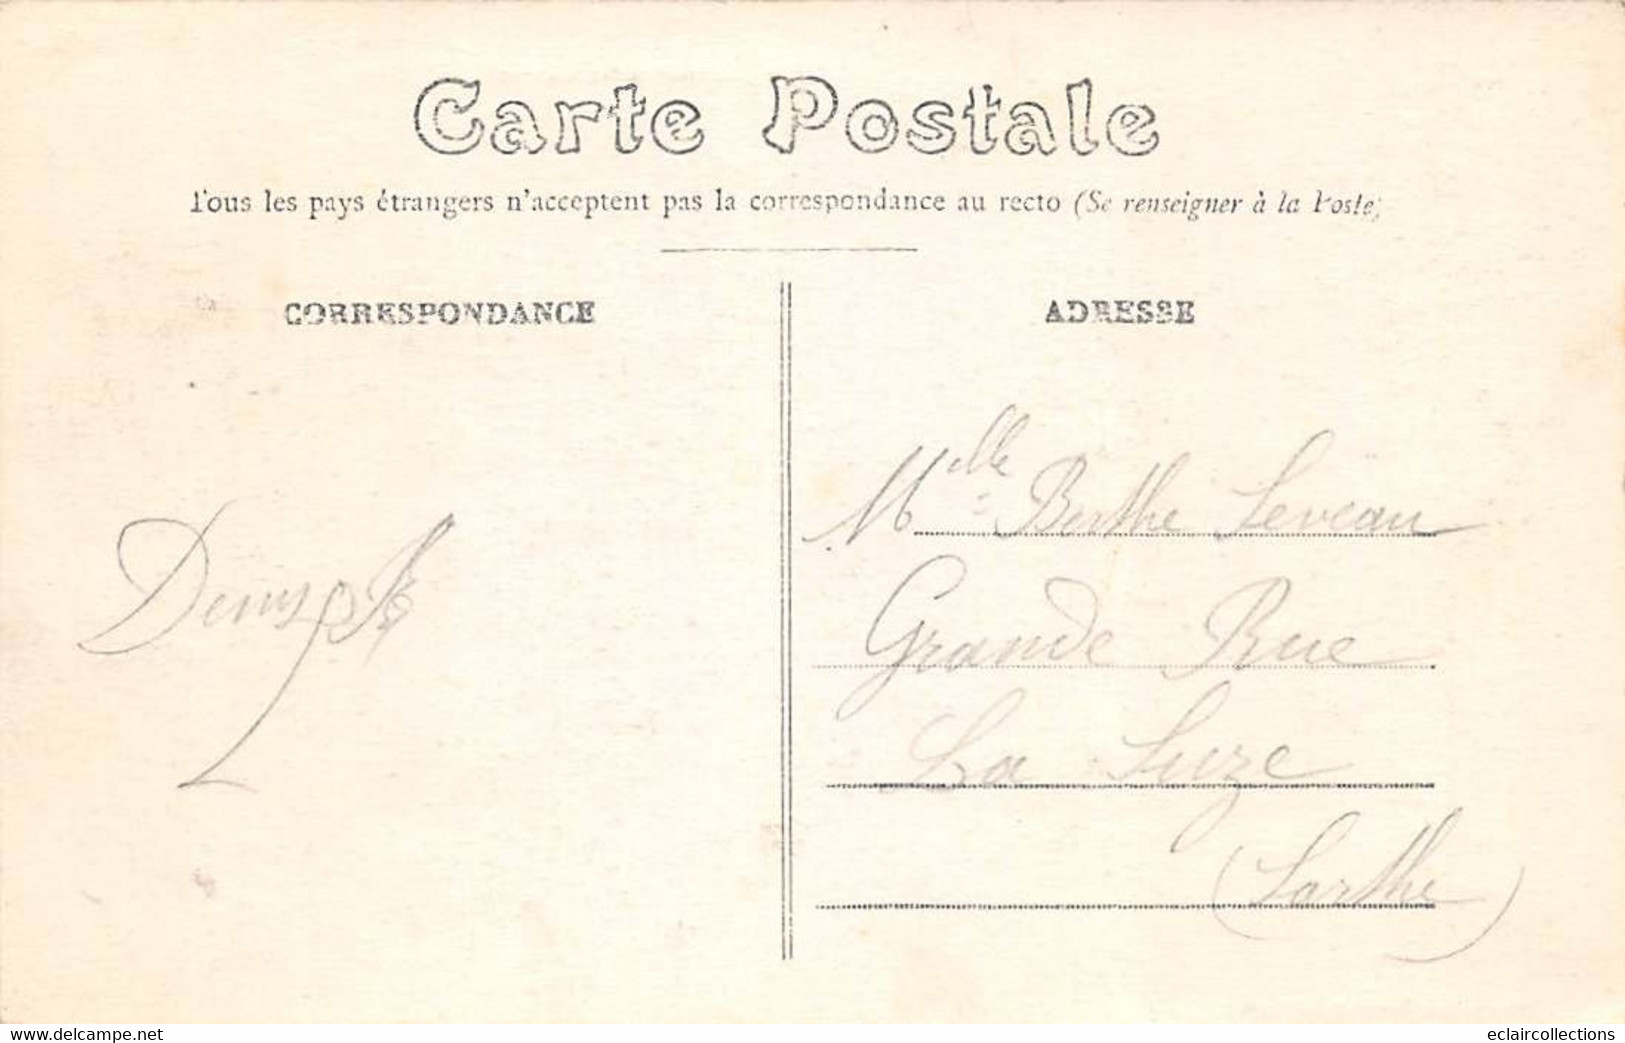 Carte Postale
Tous les pays étrangers n'acceptent pas la correspondance au recto (Se renseigner à la Poste)
CORRESPONDANCE
ADRESSE
Mlle Berthe Leveau
Grande Rue
La Suze
(Sarthe)
delcampe.net
eclaircollections